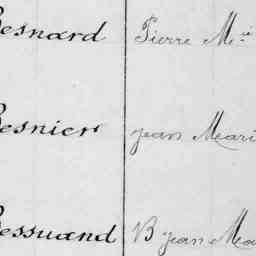 Besnard Pierre M.ie
Besnier Jean Mari
Bessuand B Jean Ma